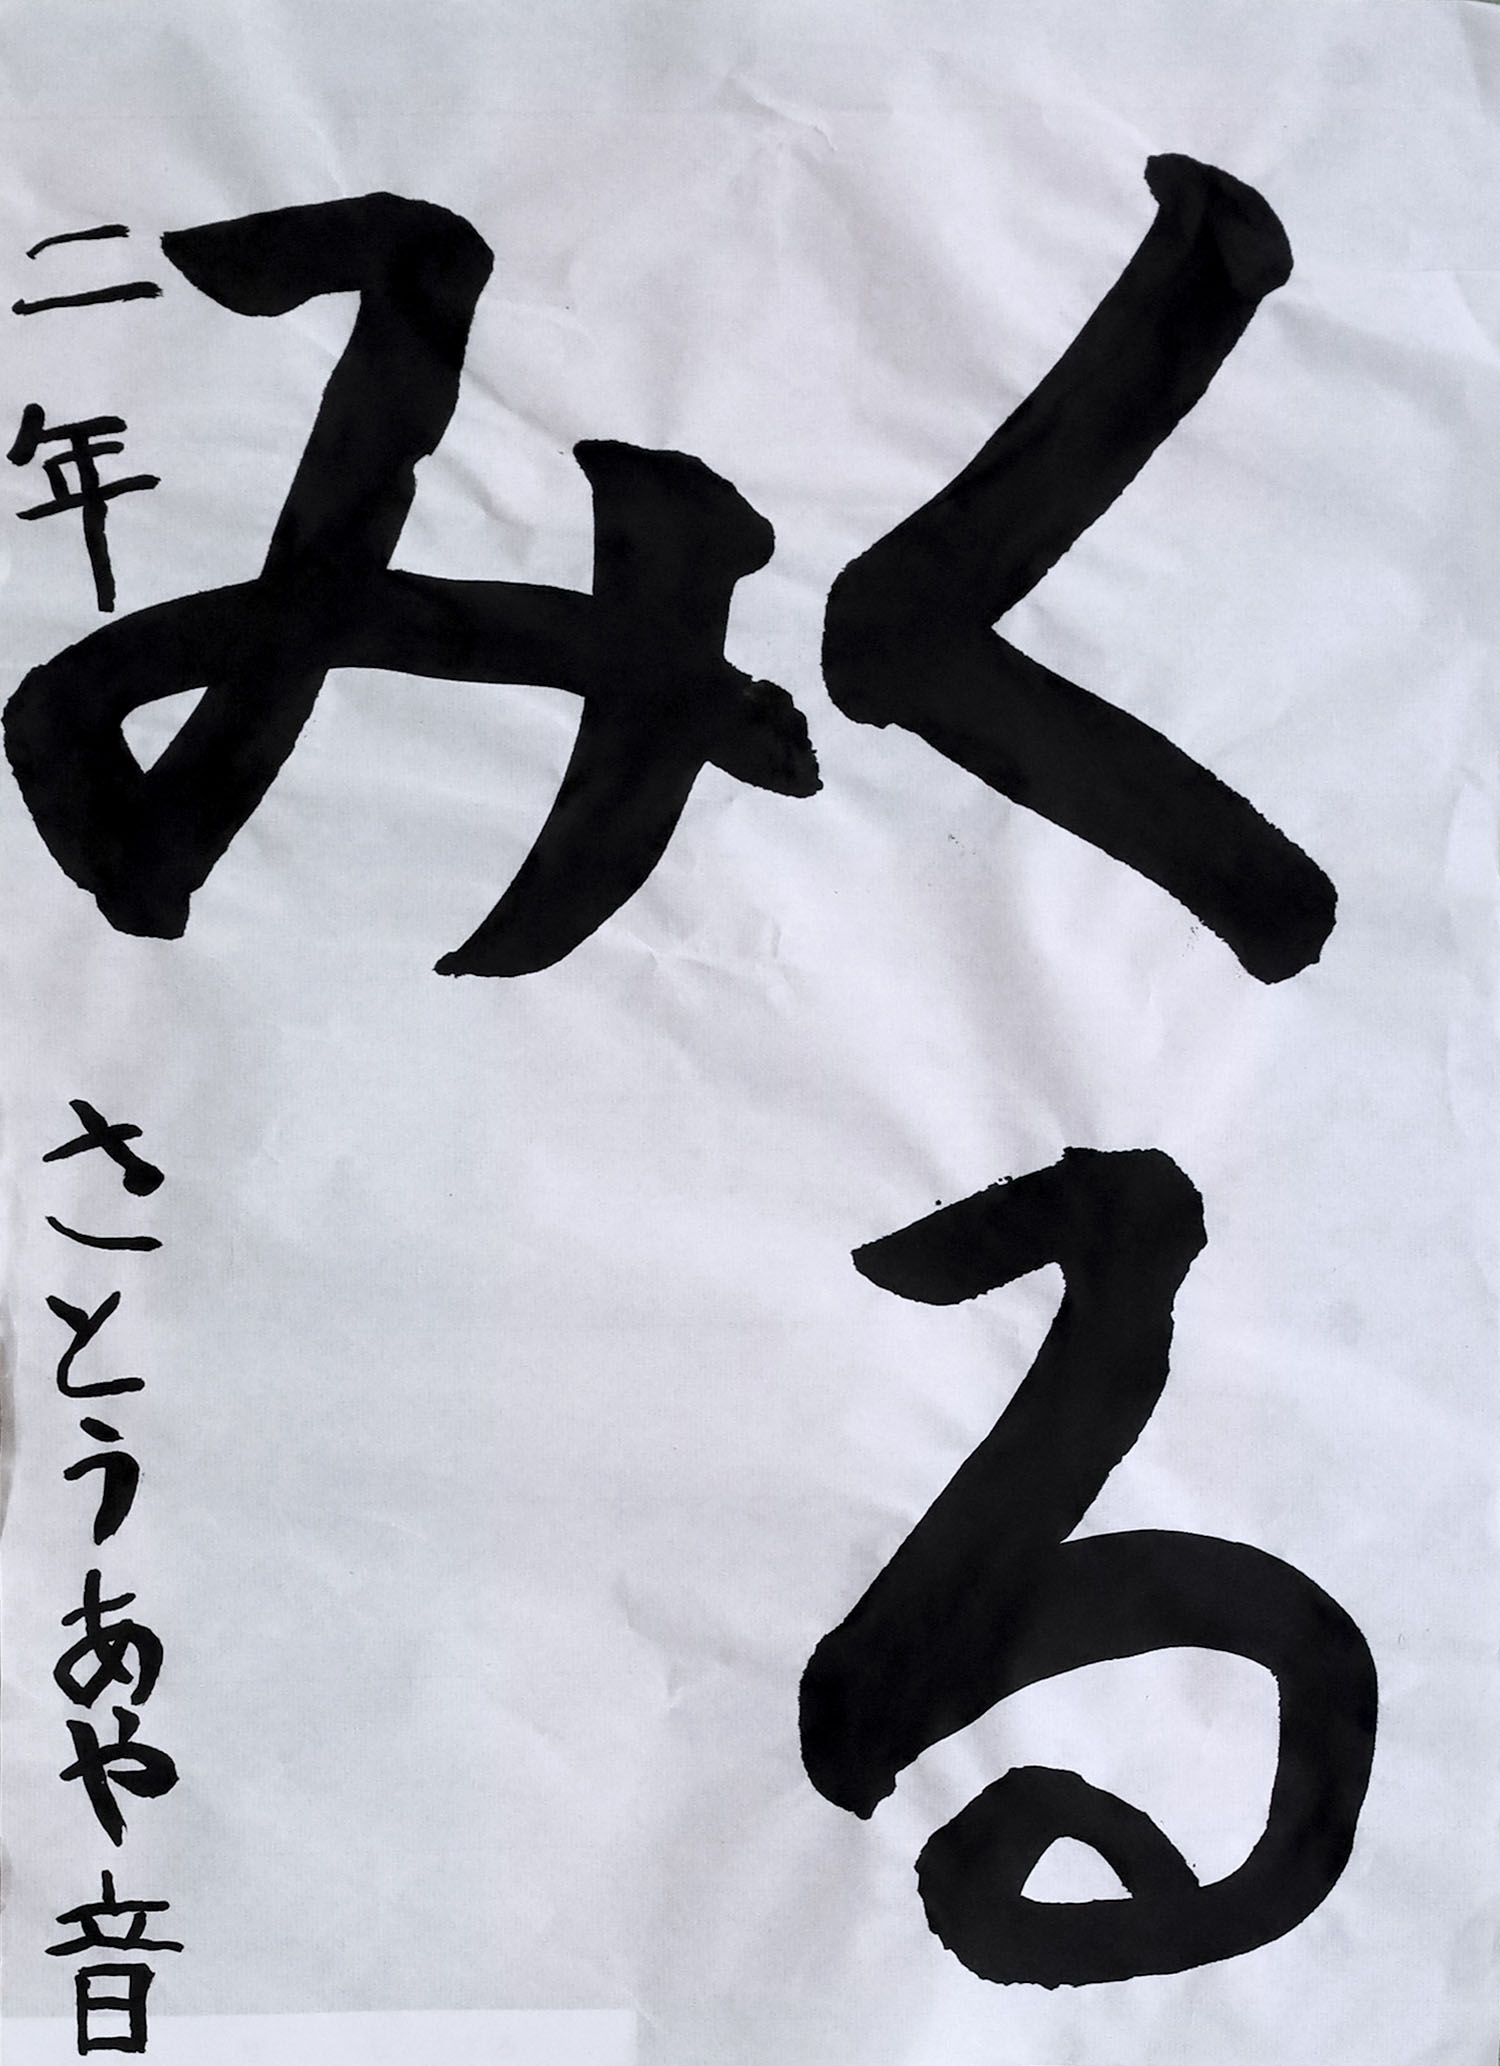 くる
み
二年 さとうあや音